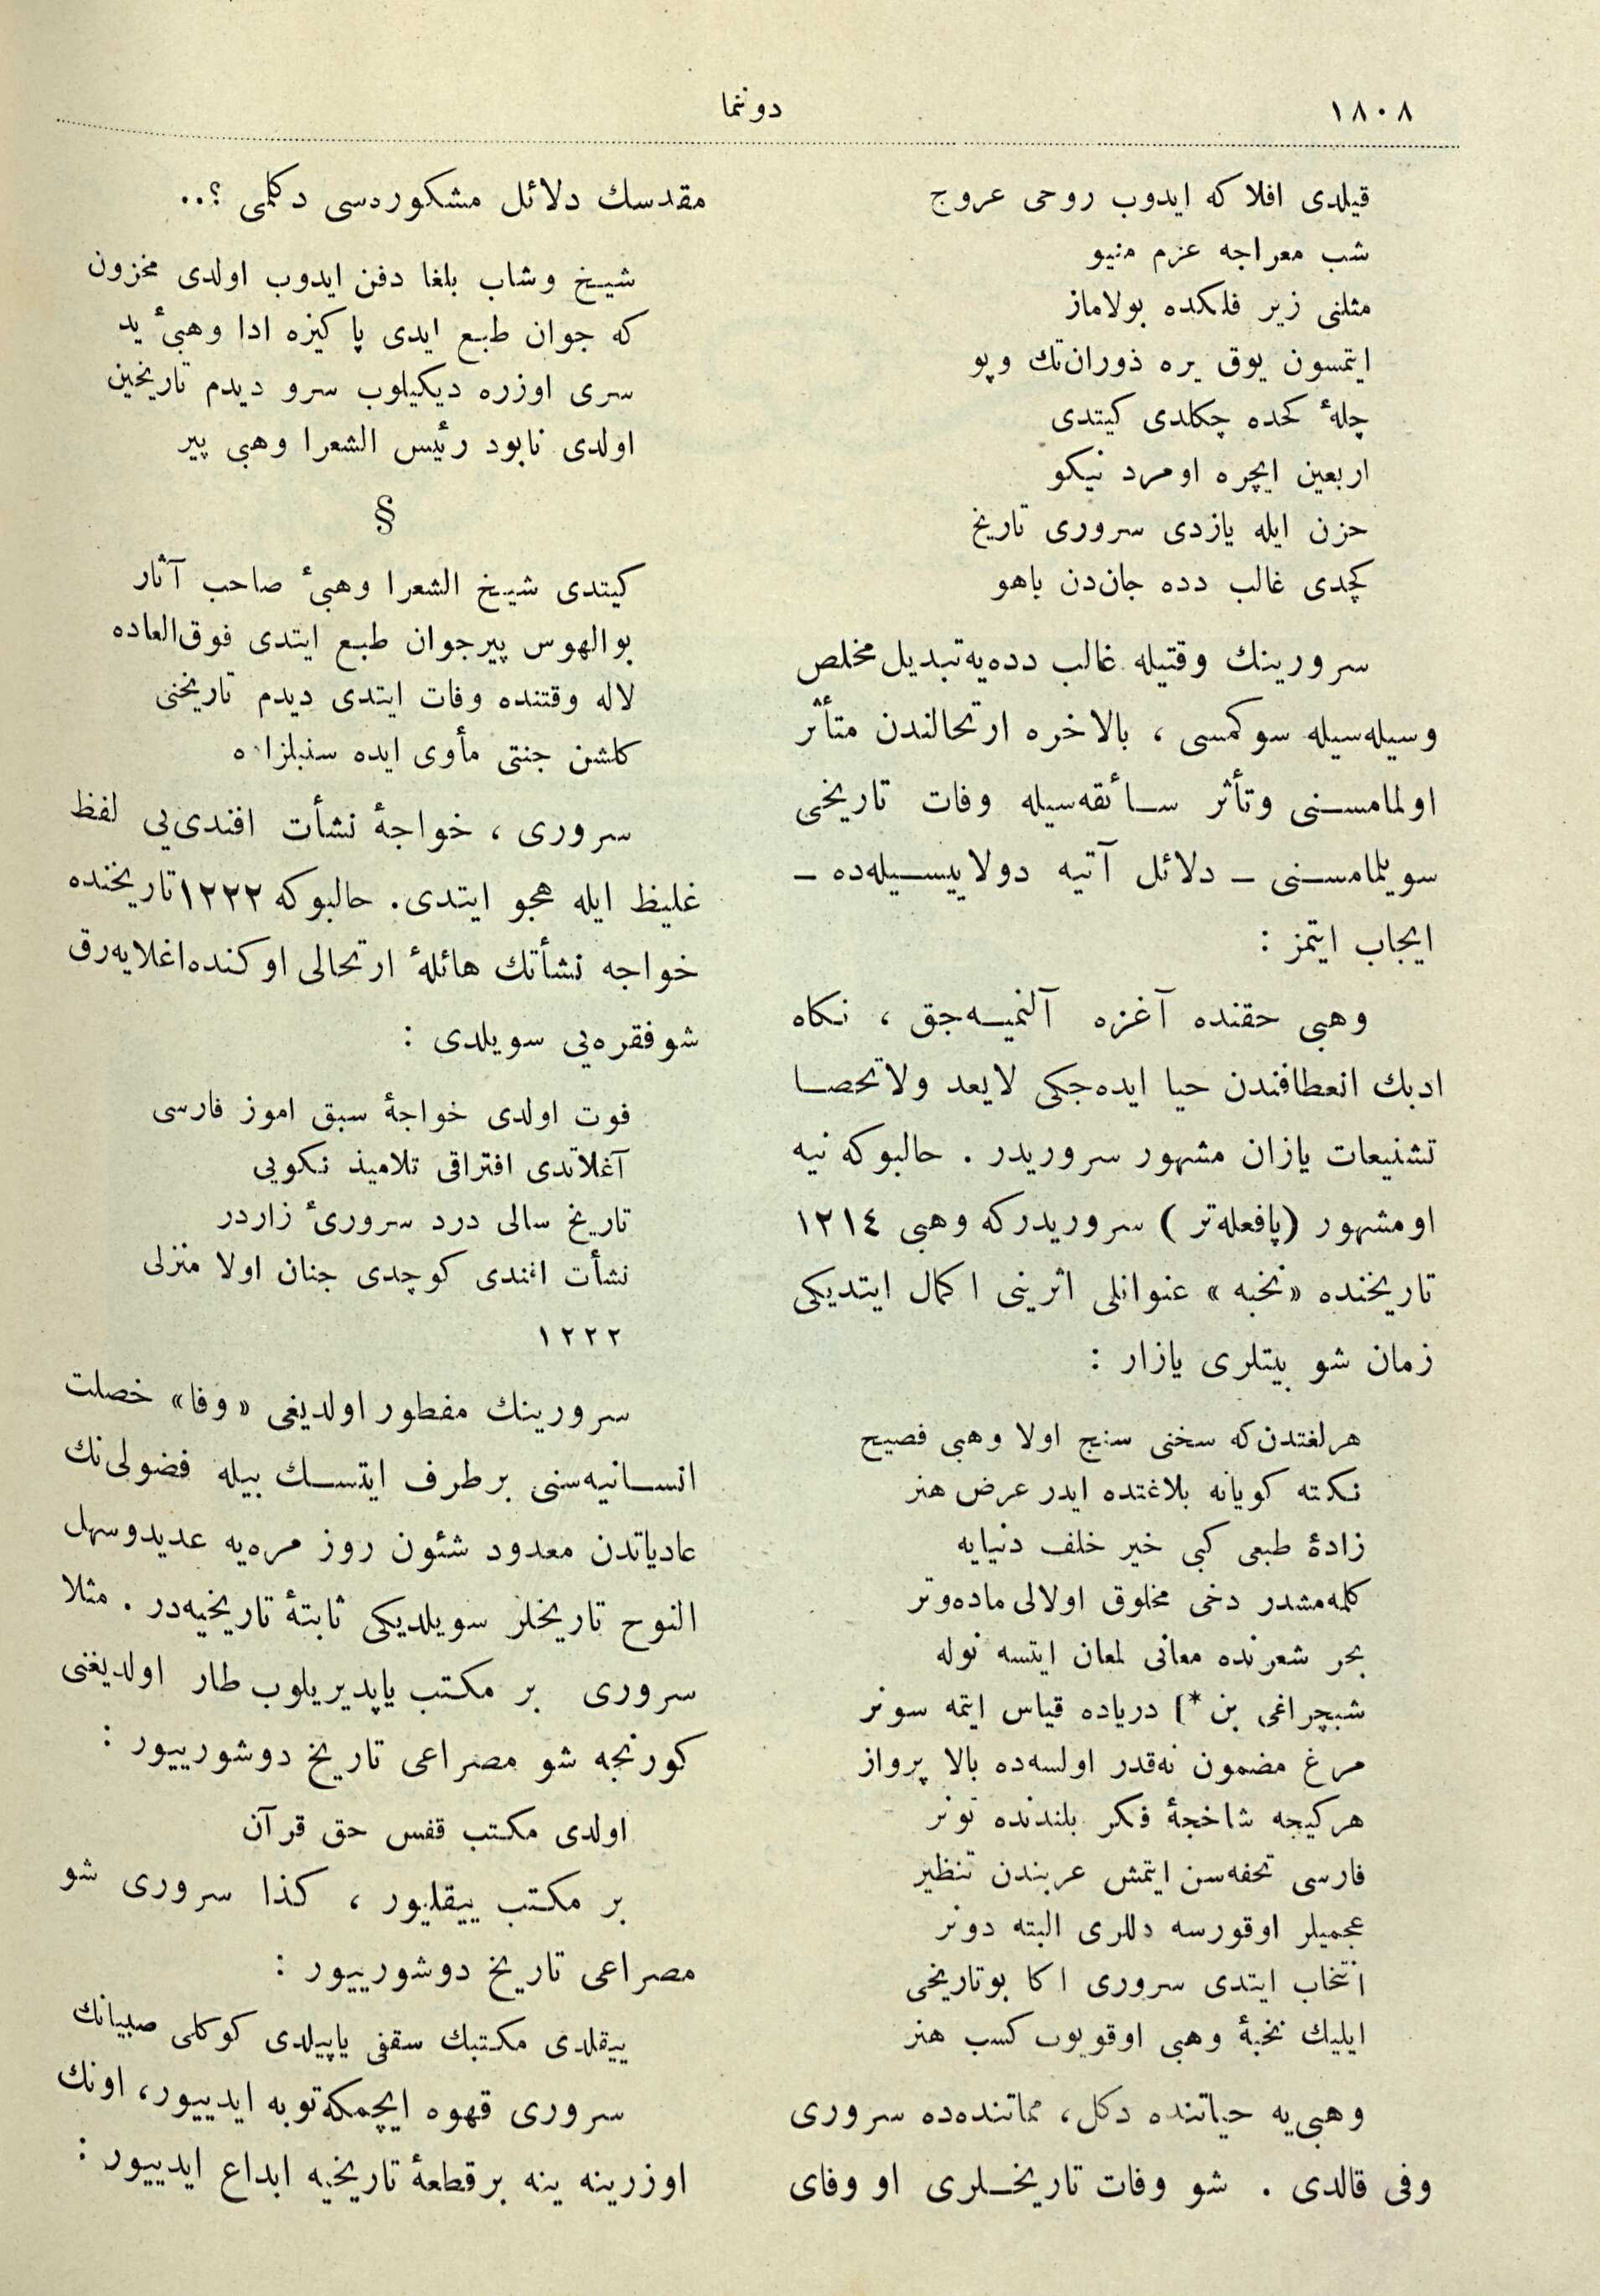 ١٨٠٨
دوننما
قیلدی افلا که ایدوب روحی عروج
شب معراجه عزم منیو
مثلنی زیر فلکده بولاماز
ایتمسون یوق یره ذوران‌تك وپو
چلهٔ لحده چکلدی کیتدی
اربعین ایچره اومرد نیکو
حزن ایله یازدی سروری تاریخ
کچدی غالب دده جان‌دن یاهو
سرورینك وقتیله غالب دده‌یه‌تبدیل‌مخلص
وسیله‌سیله سوکمسی ، بالاخره ارتحالندن متأثر
اولمامسنی وتأثر سائقه‌سیله وفات تاریخی
سویلمامسنی – دلائل آتیه دولاییسیله‌ده –
ایجاب ایتمز :
وهبی حقنده آغزه آلنمیه‌جق ، نکاه
ادبك انعطافندن حیا ایده‌جکی لایعد ولاتحصا
تشنیعات یازان مشهور سروریدر . حالبوکه نیه
اومشهور (پافعله‌تر) سروریدرکه وهبی ١٢١٤
تاریخنده «نخبه» عنوانلی اثرینی اکمال ایتدیکی
زمان شو بیتلری یازار :
هرلغتدن‌که سخنی سنج اولا وهبی فصیح
نکته کویانه بلاغتده ایدر عرض هنر
زادهٔ طبعی کبی خیر خلف دنیایه
کلمه‌مشدر دخی مخلوق اولالی ماده‌وتر
بحر شعرنده معانی لمعان ایتسه نوله
شبچراغی بن *] دریاده قیاس ایتمه سونر
مرغ مضمون نه‌قدر اولسه‌ده بالا پرواز
هرکیجه شاخجهٔ فکر بلندنده تونر
فارسی تحفه‌سن ایتمش عربندن تنظیر
عجمیلر اوقورسه دللری البته دونر
انتخاب ایتدی سروری اکا بوتاریخی
ایلیك نخبهٔ وهبی اوقویوب کسب هنر
وهبی‌یه حیاتنده دکل، مماتنده‌ده سروری
وفی قالدی . شو وفات تاریخلری او وفای
مقدسك دلائل مشکوره‌سی دکلمی ؟..
شیخ وشاب بلغا دفن ایدوب اولدی مخزون
که جوان طبع ایدی پاکیزه ادا وهبیٔ ید
سری اوزره دیکیلوب سرو دیدم تاریخین
اولدی نابود رئیس الشعرا وهبی پیر
§
کیتدی شیخ الشعرا وهبیٔ صاحب آثار
بوالهوس پیرجوان طبع ایتدی فوق‌العاده
لاله وقتنده وفات ایتدی دیدم تاریخنی
کلشن جنتی مأوی ایده سنبلزاده
سروری ، خواجهٔ نشأت افندی‌یی لفظ
غلیظ ایله هجو ایتدی. حالبوکه ١٢٢٢ تاریخنده
خواجه نشأتك هائلهٔ ارتحالی اوکنده‌اغلایه‌رق
شوفقره‌یی سویلدی :
فوت اولدی خواجهٔ سبق اموز فارسی
آغلاتدی افتراقی تلامیذ نکویی
تاریخ سالی درد سروریٔ زاردر
نشأت افندی کوچدی جنان اولا منزلی
١٢٢٢
سرورینك مفطور اولدیغی «وفا» خصلت
انسانیه‌سنی برطرف ایتسك بیله فضولی‌نك
عادیاتدن معدود شئون روز مره‌یه عدیدوسهل
النوح تاریخلر سویلدیکی ثابتهٔ تاریخیه‌در . مثلا
سروری بر مکتب یاپدیریلوب طار اولدیغنی
کورنجه شو مصراعی تاریخ دوشورییور :
اولدی مکتب قفس حق قرآن
بر مکتب ییقلیور ، کذا سروری شو
مصراعی تاریخ دوشورییور :
ییقلدی مکتبك سقفی یاپیلدی کوکلی صبیانك
سروری قهوه ایچمکه‌توبه ایدییور، اونك
اوزرینه ینه برقطعهٔ تاریخیه ابداع ایدییور :